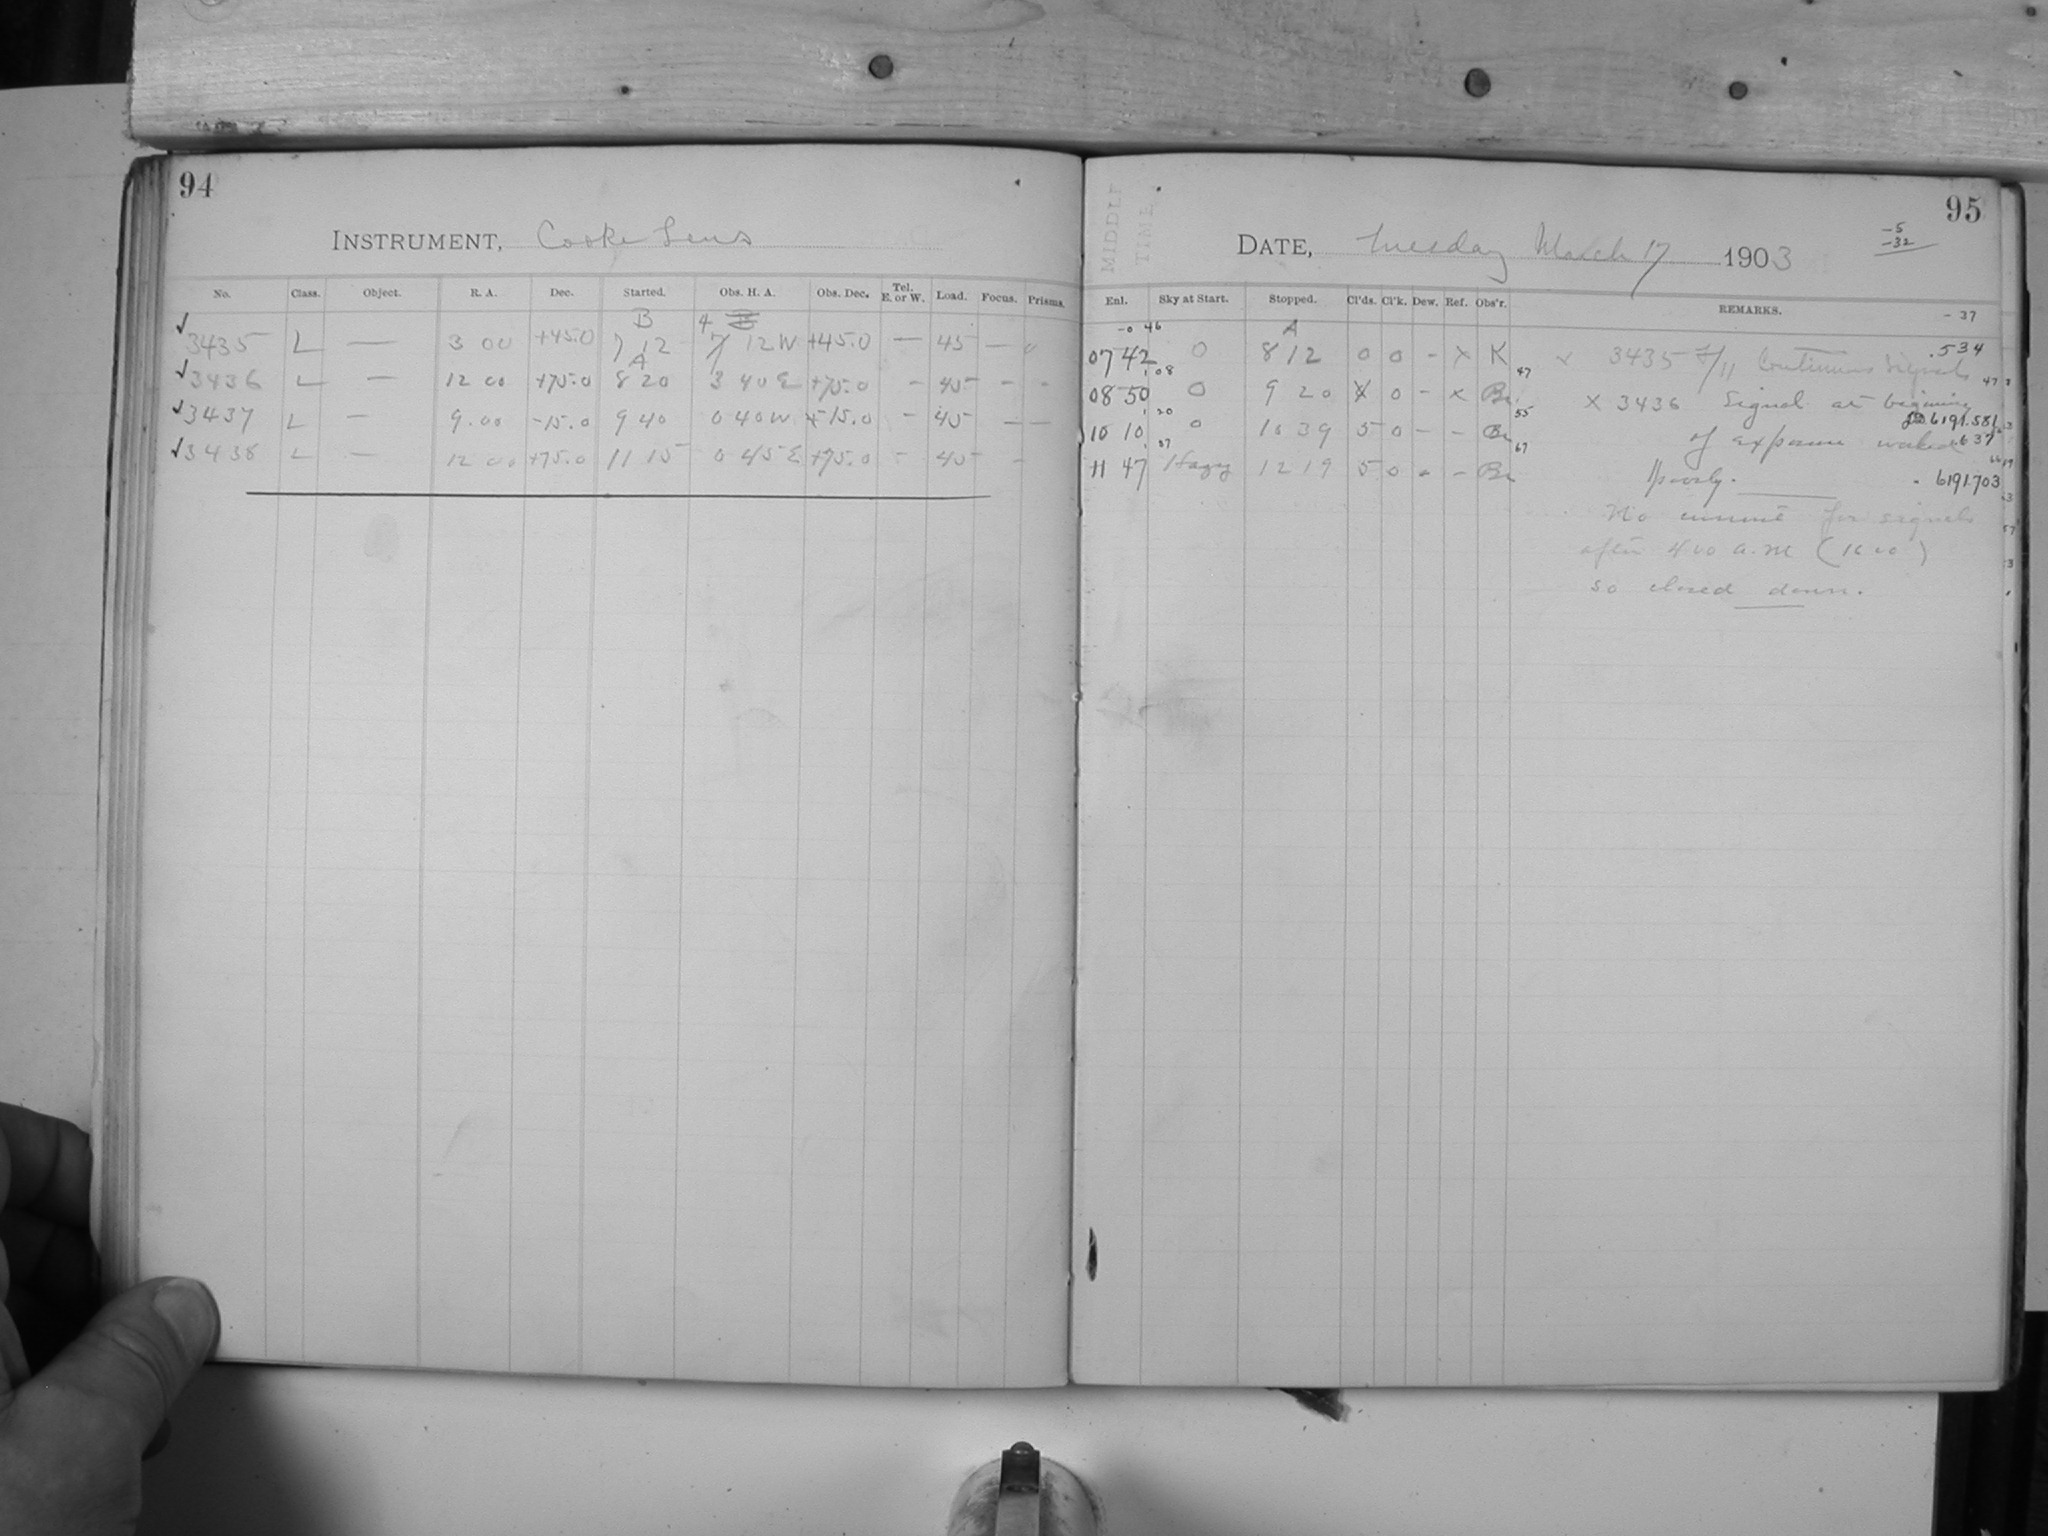 94
INSTRUMENT, Cooke Lens
No. Class. Object. R. A. Dec. Started. Obs. H. A. Obs. Dec. Tel. E. or W. Load. Focus. Prisms.
B 4
✓3435 L — 3 00 +45.0 7 12 7 12 W +45.0 — 45 —
A
✓3436 L — 12 00 +75.0 8 20 3 40 E +75.0 - 45 - -
✓3437 L — 9.00 -15.0 9 40 0 40 W -15.0 - 45 - -
✓3438 L — 12 00 +75.0 11 15 0 45 E +75.0 - 45 -
95
MIDDLE
TIME
-5
-32
DATE, Tuesday March 17 1903
Enl. Sky at Start. Stopped. Cl'ds. Cl'k. Dew. Ref. Obs'r. REMARKS.
-0 46 A - 37
07 42 0 8 12 0 0 - x K x 3435 7/11 Continuous Signals .534
08 47
08 50 0 9 20 0 - x Br x 3436 Signal at beginning
20 55 6191.581
10 10 0 10 39 5 0 - - Br of exposure worked .637
37 67
11 47 Hazy 12 19 5 0 - - Br Poorly. 6191.703
No current for signals
after 4 00 a.m (16 00)
so closed down.